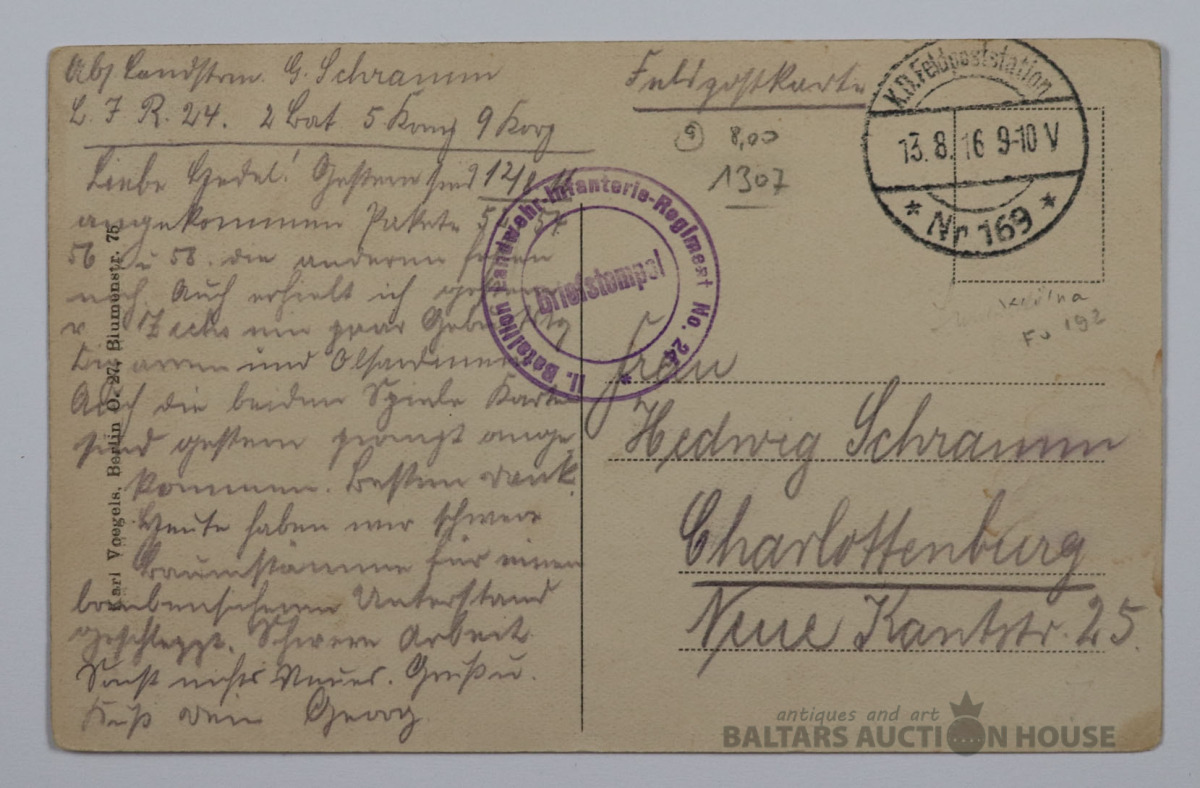 Abs Landstrm. G. Schramm
L. I R. 24. 2 Bat 5 Komp 9 Korp
Liebe Hedel! Gestern sind 12/8 16
angekommen Pakete 57
56 u 58. die anderen
noch. Auch erhielt ich gestern
v ein paar
und Ölsardinen
Auch die beiden Spiele Karten
sind gestern prompt ange
kommen. Besten Dank.
Heute haben wir schwere
Baumstämme für einen
bombensicheren Unterstand
geschleppt. Schwere Arbeit.
Sonst nichts Neues. Gruß u.
Kuß Dein Georg.
Karl Voegels, Berlin O. 27, Blumenstr. 75
Feldpostkarte
K.D. Feldpoststation
13. 8. 16 9-10 V
* Nr 169 *
9 8,00
1307
II. Bataillon Landwehr-Infanterie-Regiment No. 24
Briefstempel
*
Fu 192
Frau
Hedwig Schramm
Charlottenburg
Neue Kantstr. 25.
antiques and art
BALTARS AUCTION HOUSE